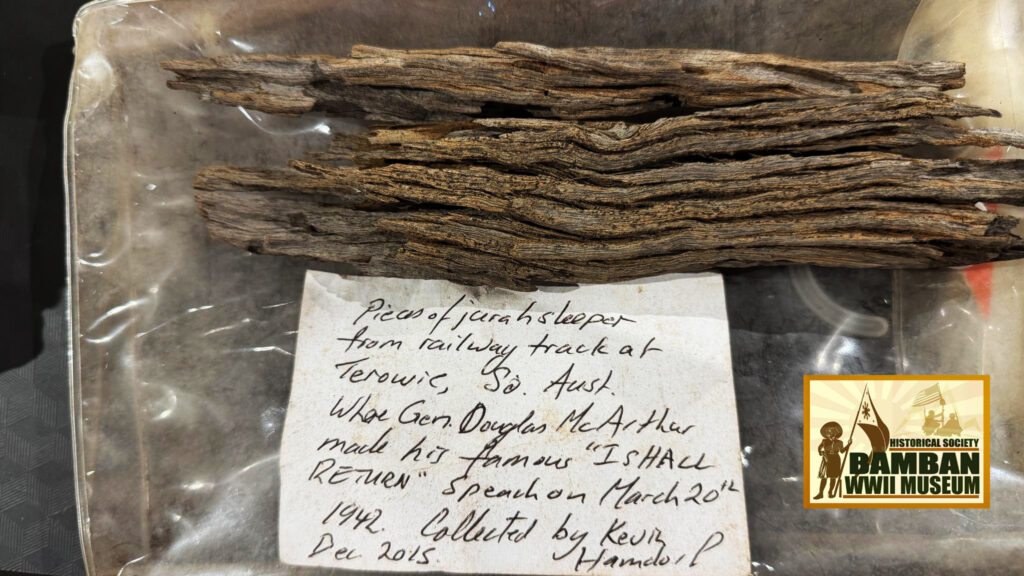 Pieces of jurah sleeper
from railway track at
Terowie, So. Aust.
Where Gen. Douglas McArthur
made his famous "I SHALL
RETURN" Speach on March 20th
1942. Collected by Kevin
Dec 2015.
HISTORICAL SOCIETY
BAMBAN
WWII MUSEUM